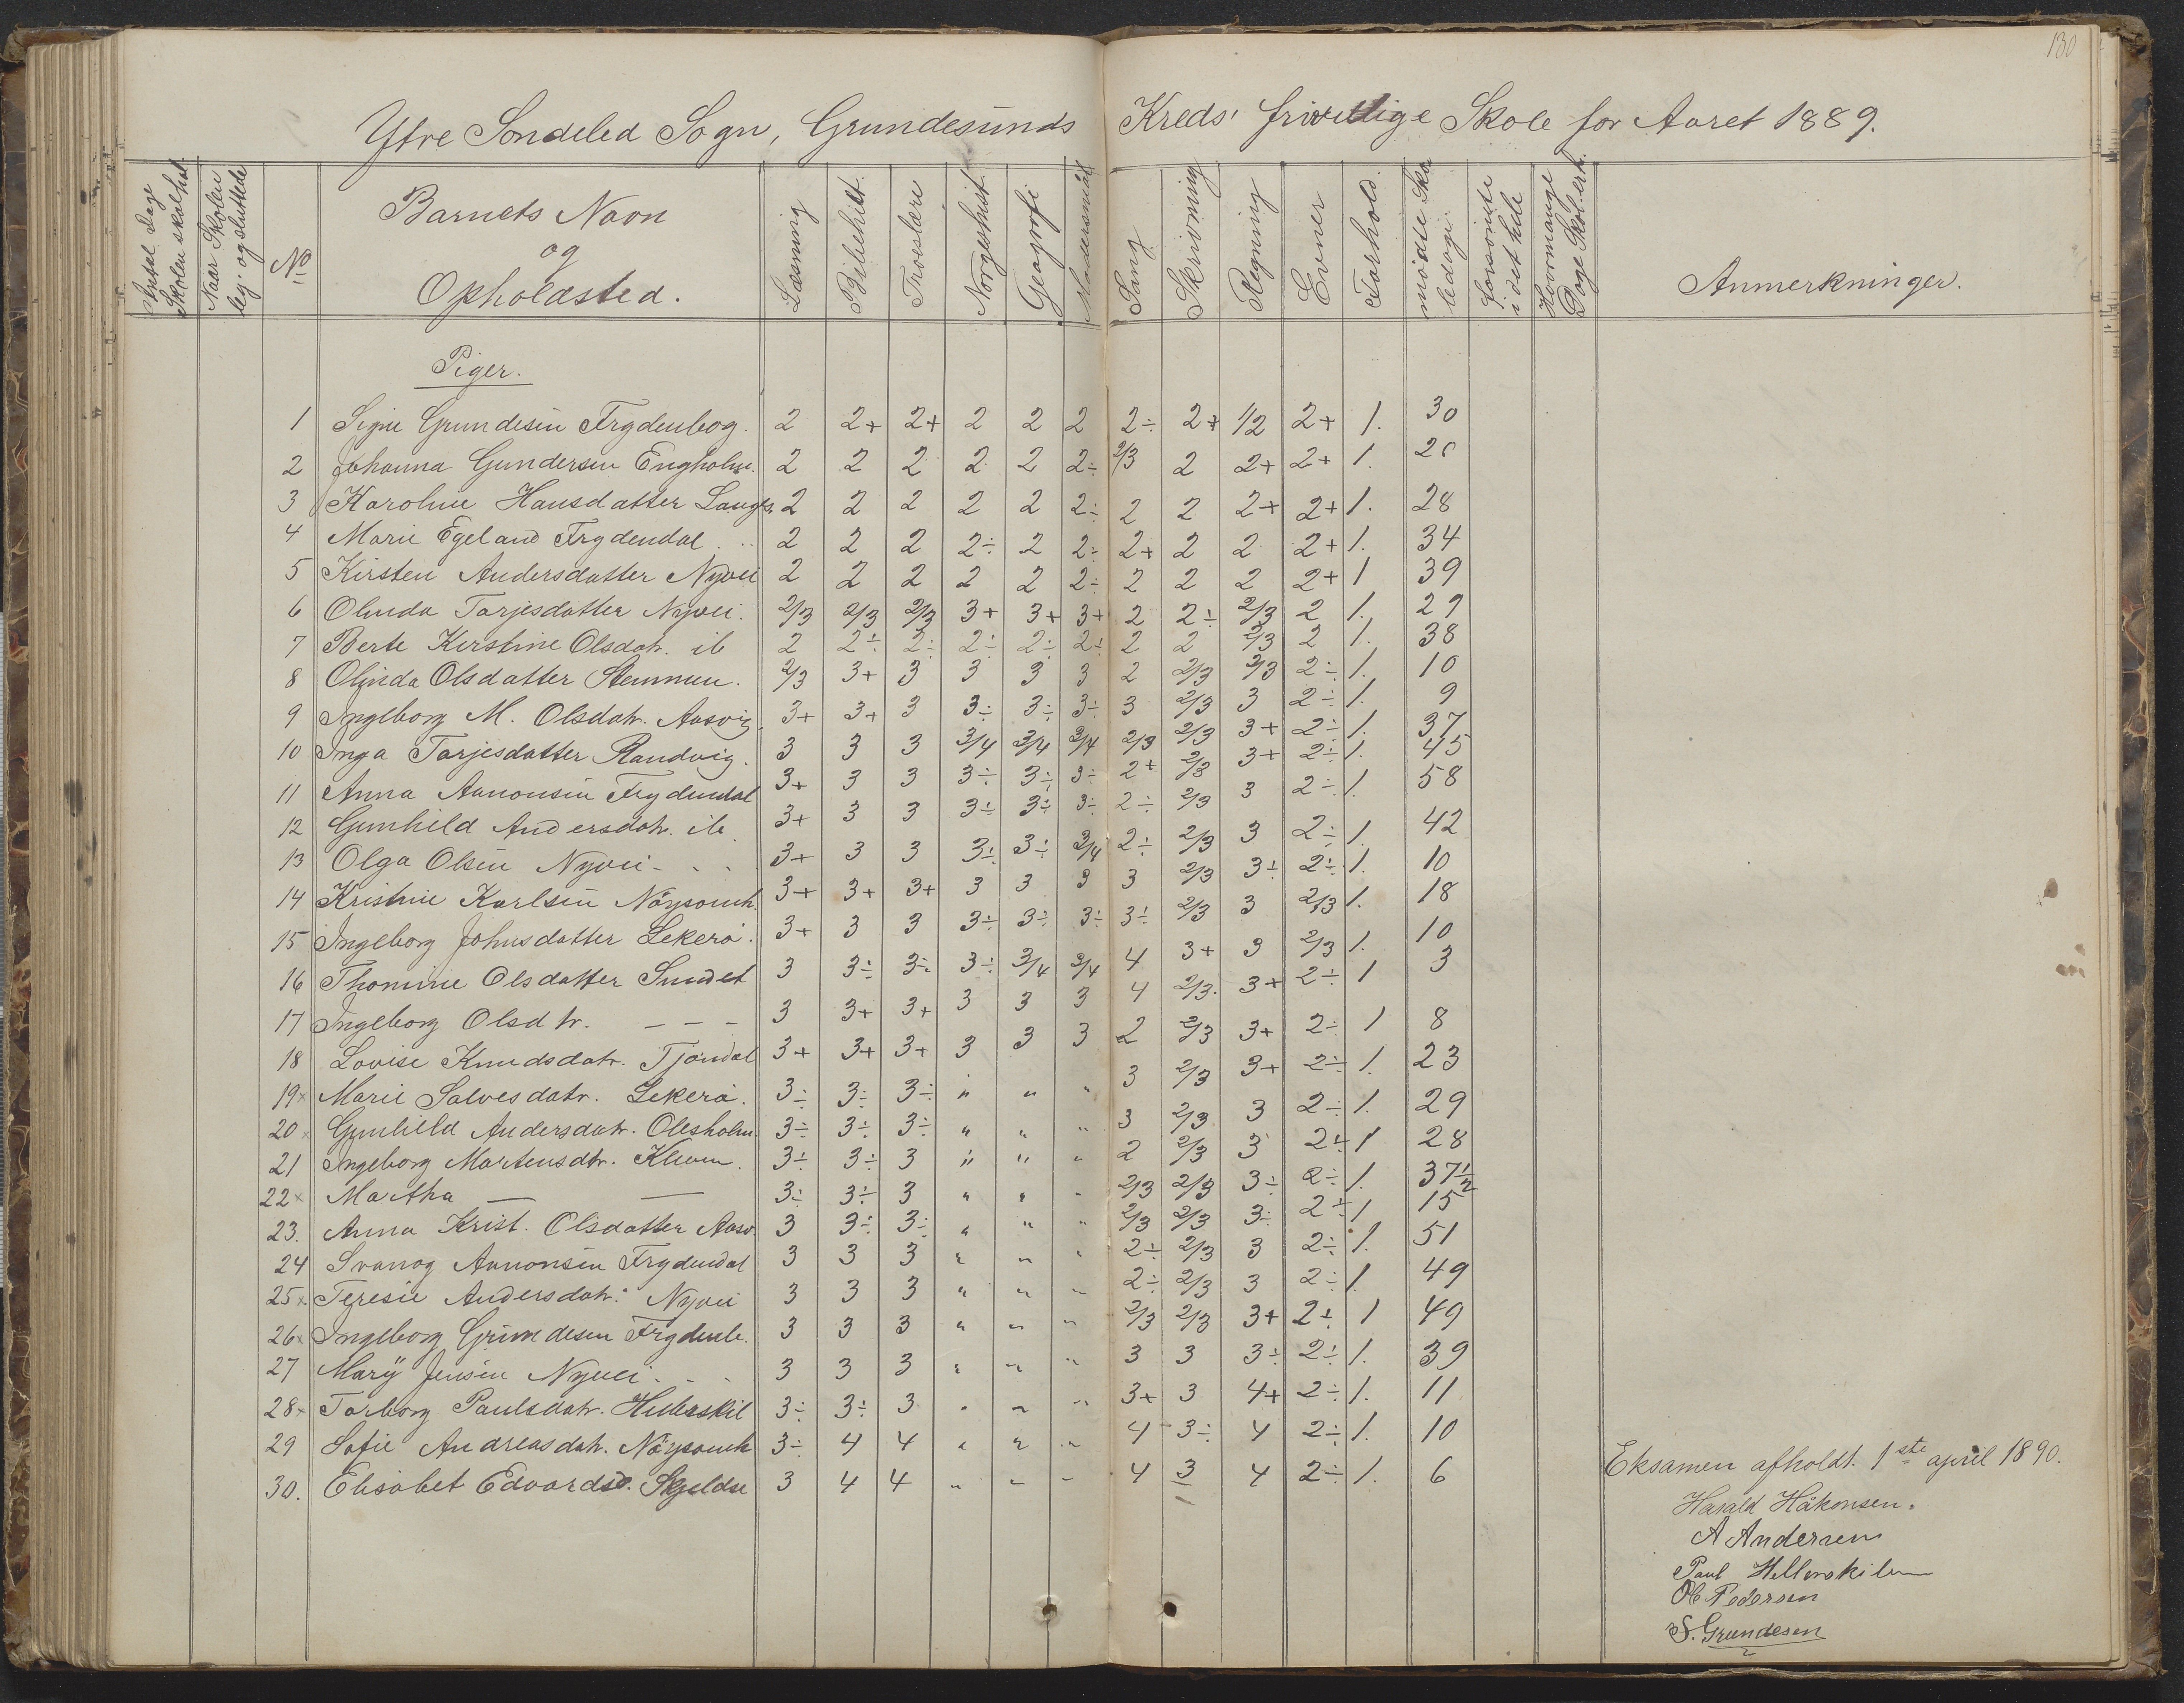 130
Ytre Sondeled Sogn, Grundesunds Kreds' frivillige Skole for Aaret 1889.
Antal Dage Skolen skal hol
Naar Skolen beg. og sluttede
No
Barnets Navn
og
Opholdsted.
Læsning
Bibelhist.
Troeslære
Norgeshist.
Geografi
Modersmål
Sang
Skrivning
Regning
Evner
Forhold.
mödte Sko ledage
forsömte i det hele
Hvormange Dage Skol. erh.
Anmerkninger.
Piger.
1 Signe Grundesen Frydenbog. 2 2+ 2+ 2 2 2 2÷ 2+ 1/2 2+ 1. 30
2 Johanna Gundersen Engholm. 2 2 2 2 2 2÷ 2/3 2 2+ 2+ 1.
3 Karoline Hansdatter Langs. 2 2 2 2 2 2÷ 2 2 2+ 2+ 1. 28
4 Marie Egeland Frydendal 2 2 2 2÷ 2 2÷ 2+ 2 2 2+ 1. 34
5 Kirsten Andersdatter Nyvei 2 2 2 2 2 2÷ 2 2 2 2+ 1 39
6 Olinda Tarjesdatter Nyvei. 2/3 2/3 2/3 3+ 3+ 3+ 2 2÷ 2/3 2 1. 29
7 Berte Kirstine Olsdatr. ib 2 2÷ 2÷ 2÷ 2÷ 2÷ 2 2 2/3 2 1. 38
8 Olinda Olsdatter Stemmen. 2/3 3+ 3 3 3 3 2 2/3 2/3 2÷ 1. 10
9 Ingeborg M. Olsdatr. Aasvig. 3+ 3+ 3 3÷ 3÷ 3÷ 3 2/3 3 2÷ 1. 9
10 Inga Tarjesdatter Randvig. 3 3 3 3/4 3/4 3/4 2/3 2/3 3+ 2÷ 1. 37
11 Anna Aanonsen Frydendal 3+ 3 3 3÷ 3÷ 3÷ 2+ 2/3 3+ 2÷ 1. 45
12 Gunhild Andersdatr. ib. 3+ 3 3 3÷ 3÷ 3÷ 2÷ 2/3 3 2÷ 1. 58
13 Olga Olsen Nyvei - - - 3+ 3 3 3÷ 3÷ 3/4 2÷ 2/3 3 2÷ 1. 42
14 Kristine Karlsen Nöysomh. 3+ 3+ 3+ 3 3 3 3 2/3 3÷ 2÷ 1. 10
15 Ingeborg Johnsdatter Lekerö. 3+ 3 3 3÷ 3÷ 3÷ 3÷ 2/3 3 2/3 1. 18
16 Thomine Olsdatter Sundet 3 3÷ 3÷ 3÷ 3/4 3/4 4 3+ 3 2/3 1. 10
17 Ingeborg Olsdtr. - - - 3 3+ 3+ 3 3 3 4 2/3. 3+ 2÷ 1 3
18 Lovise Knudsdatr. Tjöndal 3+ 3+ 3+ 3 3 3 2 2/3 3+ 2÷ 1 8
19x Marie Salvesdatr. Lekerö. 3÷ 3÷ 3÷ " " " 3 2/3 3+ 2÷ 1. 23
20x Gunhild Andersdatr. Olesholm 3÷ 3÷ 3÷ " " " 3 2/3 3 2÷ 1. 29
21 Ingeborg Martensdtr. Kleven. 3÷ 3÷ 3 " " " 2 2/3 3 2÷ 1 28
22x Martha — — 3÷ 3÷ 3 " " " 2/3 2/3 3÷ 2÷ 1. 37 1/2
23. Anna Krist. Olsdatter Aasv. 3 3÷ 3÷ " " " 2/3 2/3 3÷ 2÷ 1 15
24 Svanog Aanonsen Frydendal 3 3 3 " " " 2÷ 2/3 3 2÷ 1. 51
25x Teresie Andersdatr. Nyvei 3 3 3 " " " 2÷ 2/3 3 2÷ 1. 49
26x Ingeborg Grundesen Frydenb. 3 3 3 " " " 2/3 2/3 3+ 2÷ 1 49
27 Marÿ Jensen Nyvei - - - 3 3 3 " " " 3 3 3÷ 2÷ 1. 39
28x Tarborg Paulsdatr. Hellerskil 3÷ 3÷ 3 " " " 3+ 3 4+ 2÷ 1. 11
29 Sofie Andreasdatr. Nöysomh 3÷ 4 4 " " " 4 3÷ 4 2÷ 1. 10
30. Elisabet Edvardsd. Skjeldse 3 4 4 " " " 4 3 4 2÷ 1. 6
Eksamen afholdt. 1ste april 1890.
Harald Håkonsen.
A Andersen
Paul Hellerskilen
Ol Pedersen
S. Grundesen